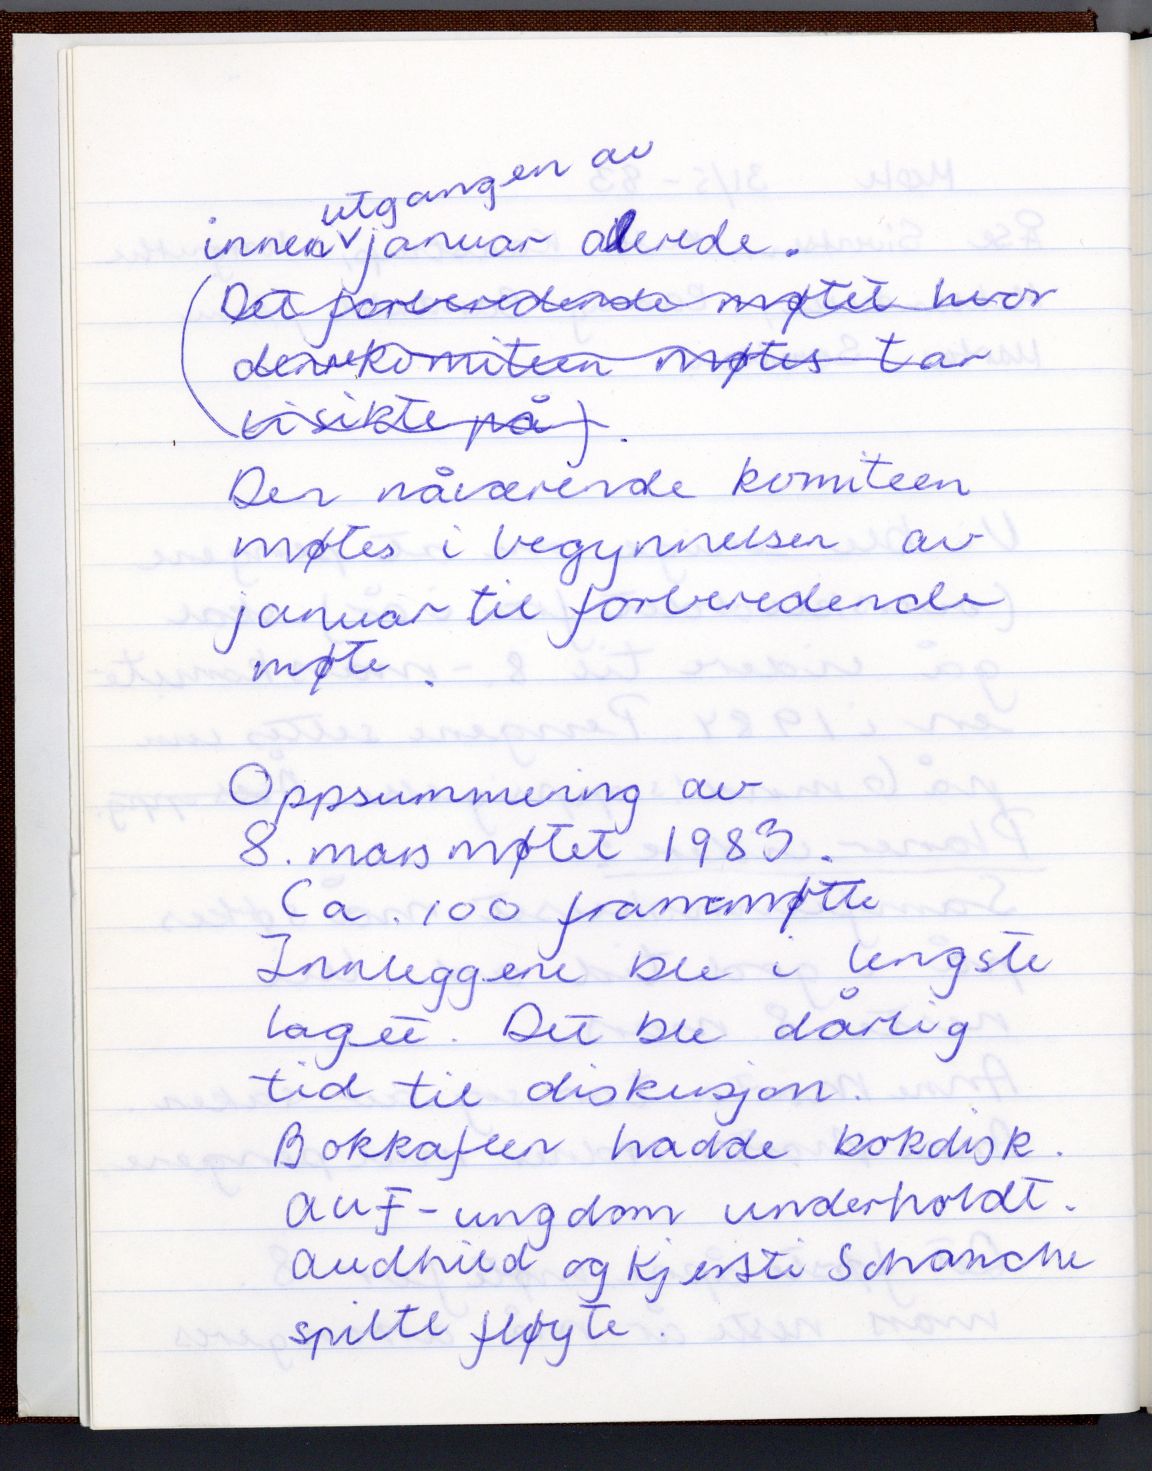 utgangen av
innen januar allerede.
(Det forberedende møtet hvor
denne komiteen møtes tar
vi sikte på).
Den nåværende komiteen
møtes i begynnelsen av
januar til forberedende
møte.
Oppsummering av
8. mars møtet 1983.
Ca. 100 frammøtte
Innleggene ble i lengste
laget. Det ble dårlig
tid til diskusjon.
Bokkafeen hadde bokdisk.
AUF-ungdom underholdt.
Audhild og Kjersti Schanche
spilte fløyte.